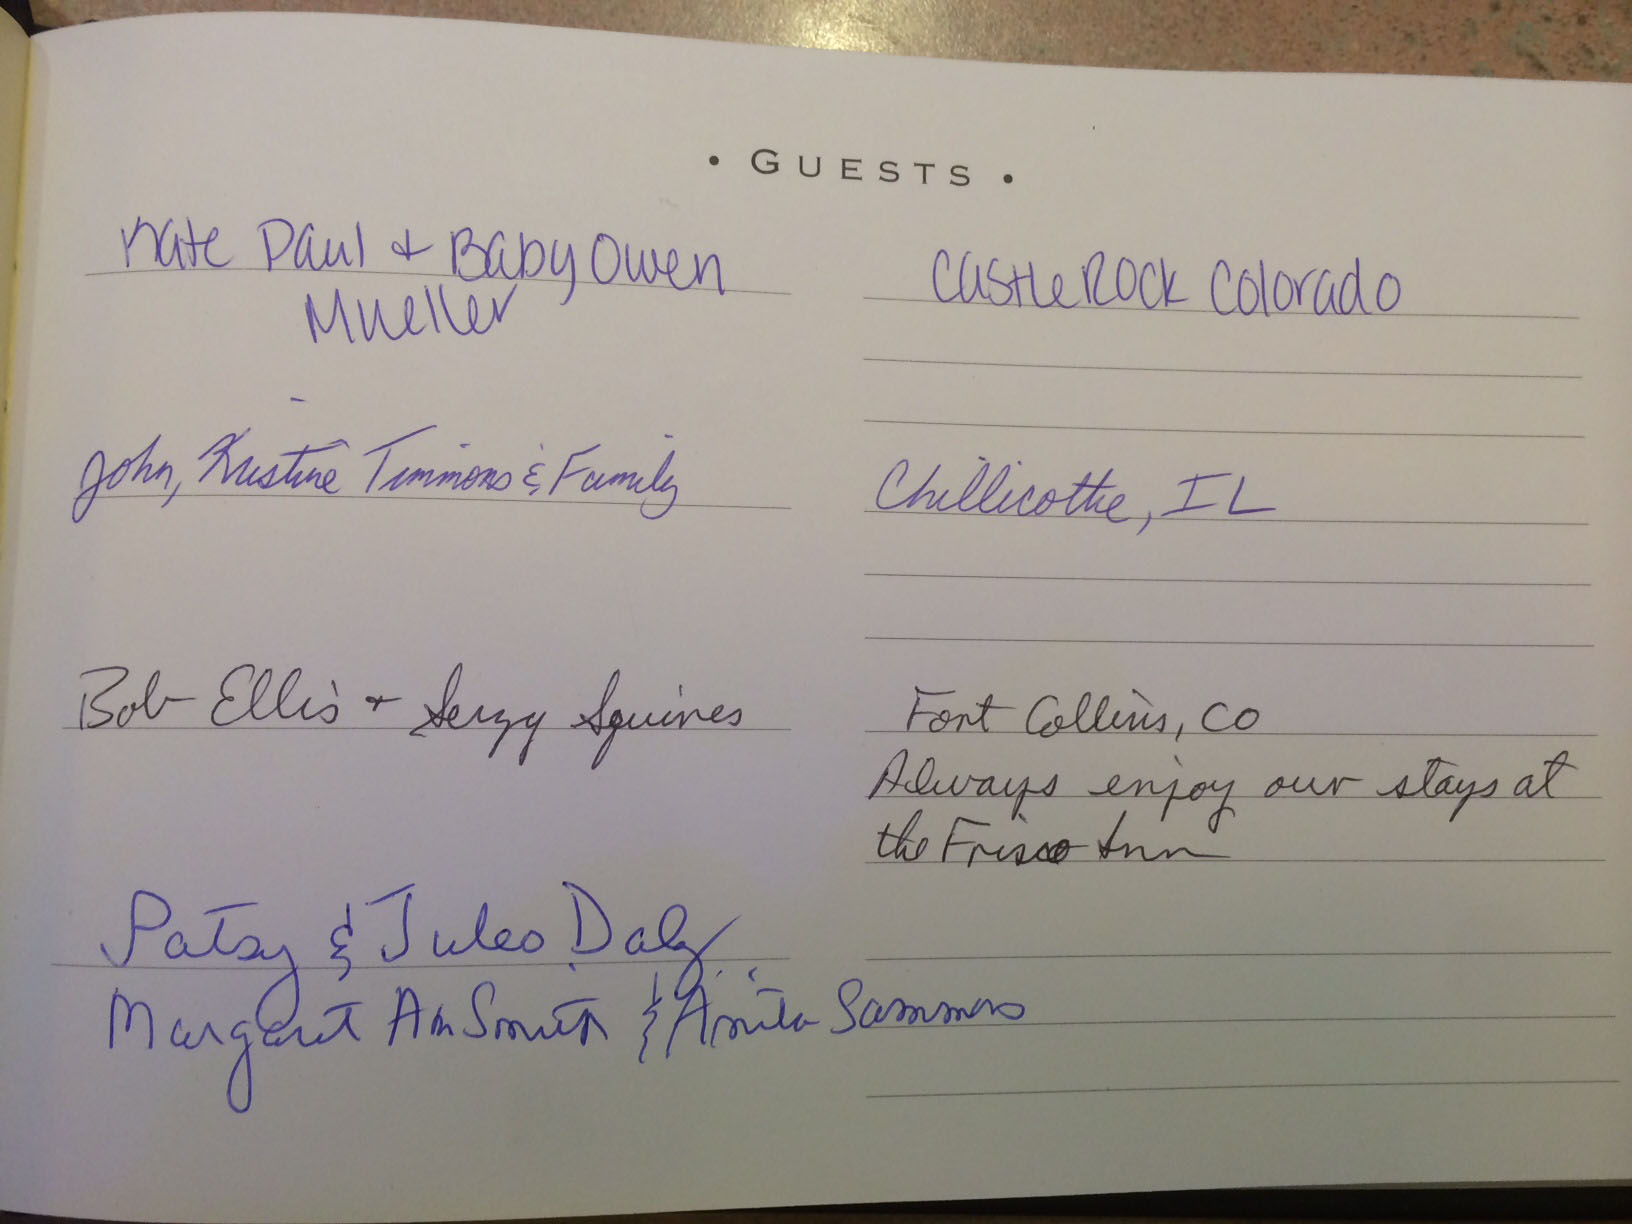 • GUESTS •
Kate Paul + Baby Owen
Mueller
Castle Rock Colorado
John, Kristine Timmons & Family
Chillicothe, IL
Bob Ellis + Squires
Fort Collins, CO
Always enjoy our stays at
the Frisco Inn
Patsy & Jules Daly
Margaret Ann Smith & Anita Sammons